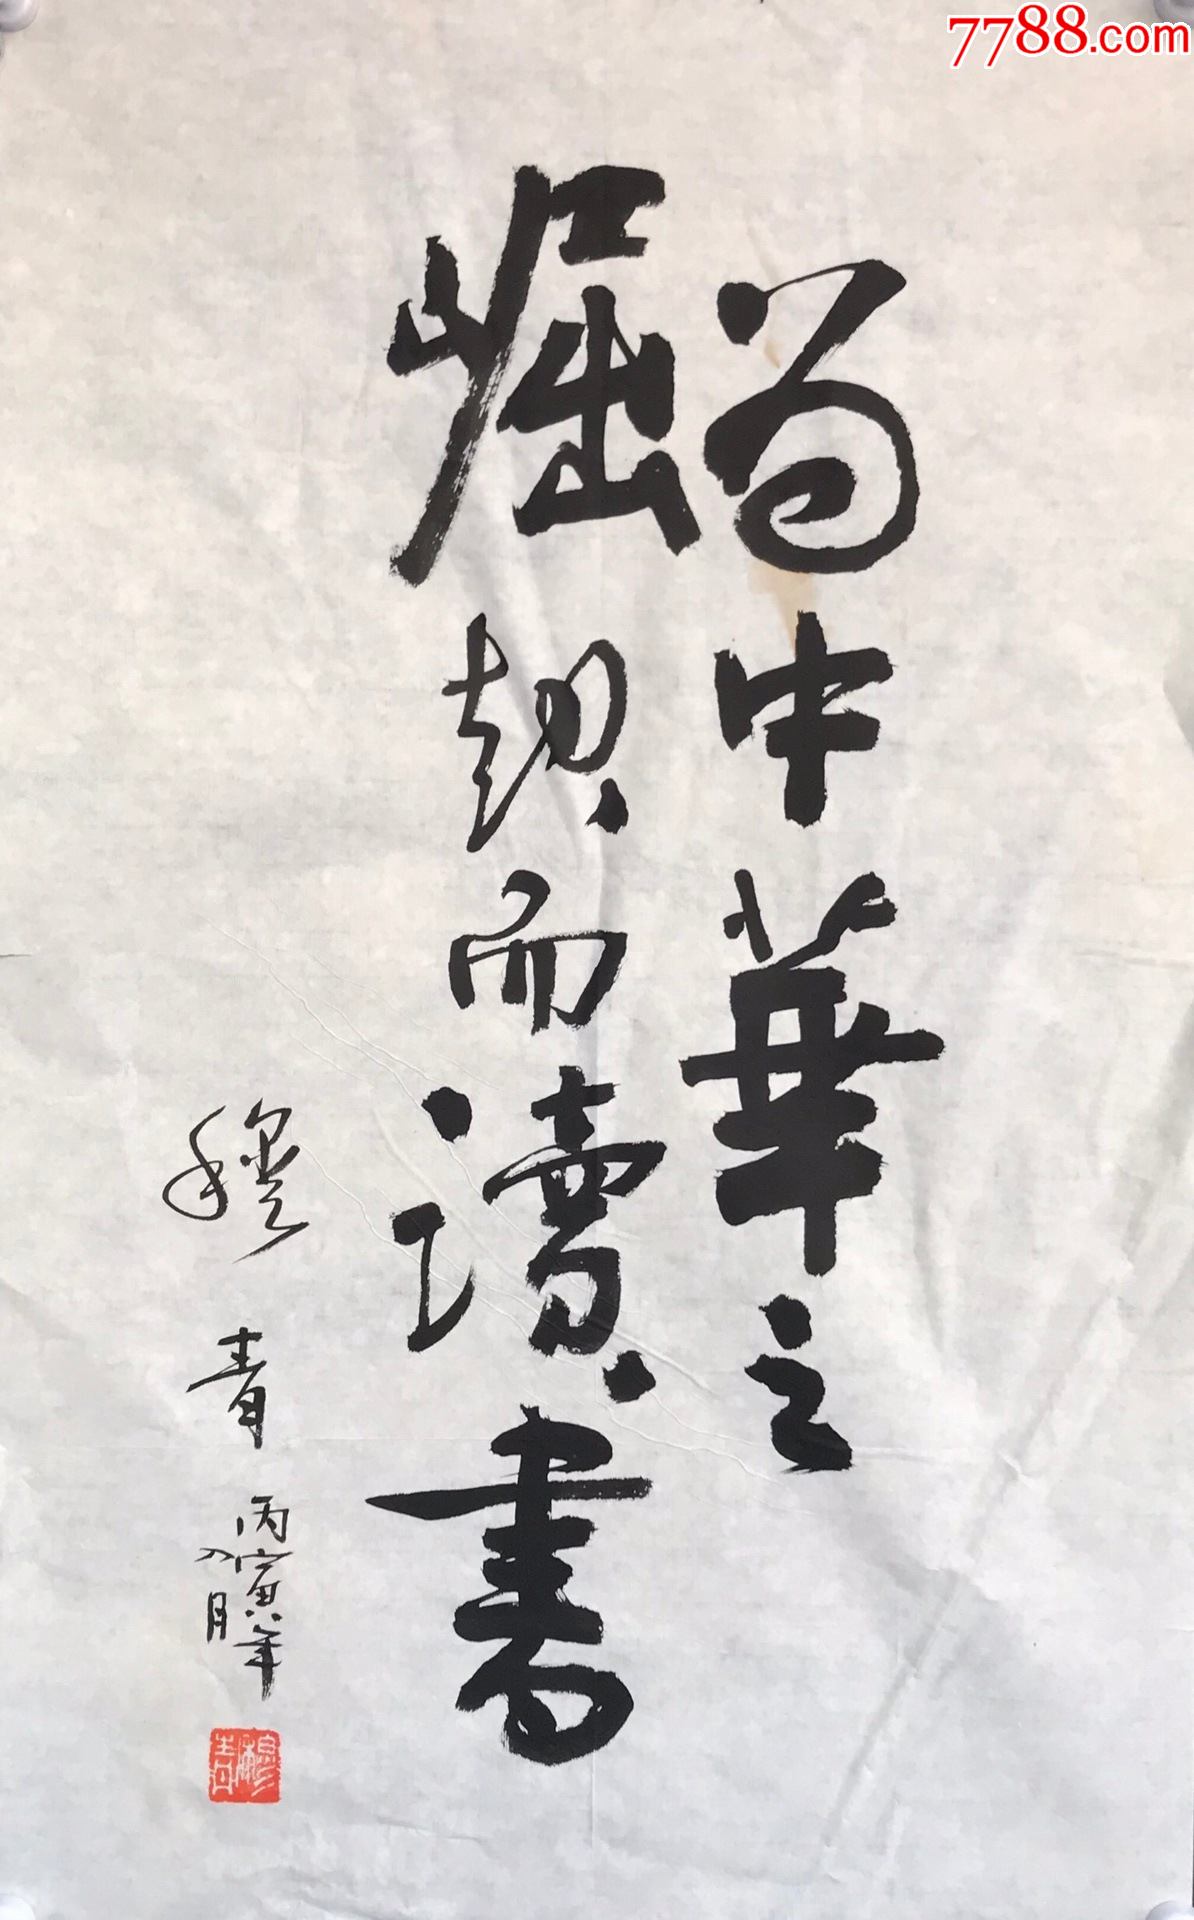 7788.com
為中華之
崛起而讀書
穆青
丙寅年
八月
穆青